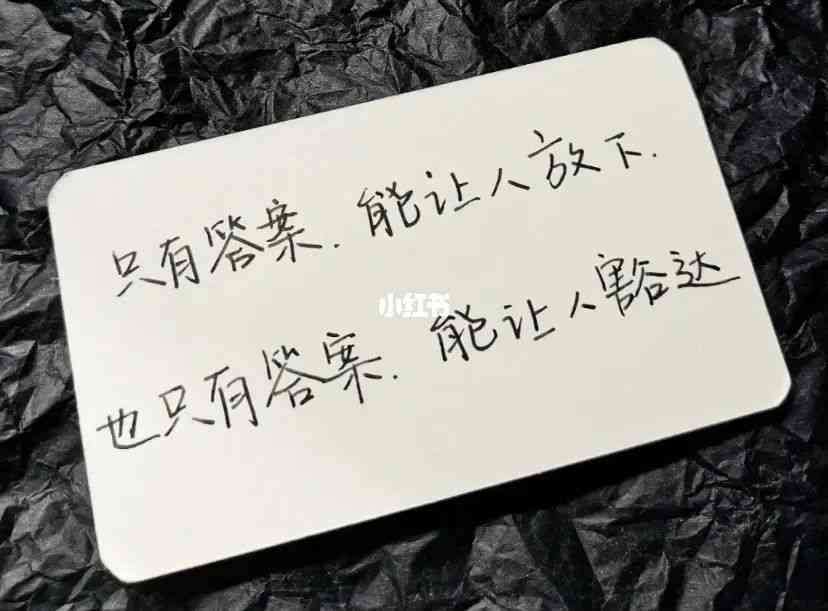 只有答案.能让人放下.
小红书
也只有答案.能让人豁达